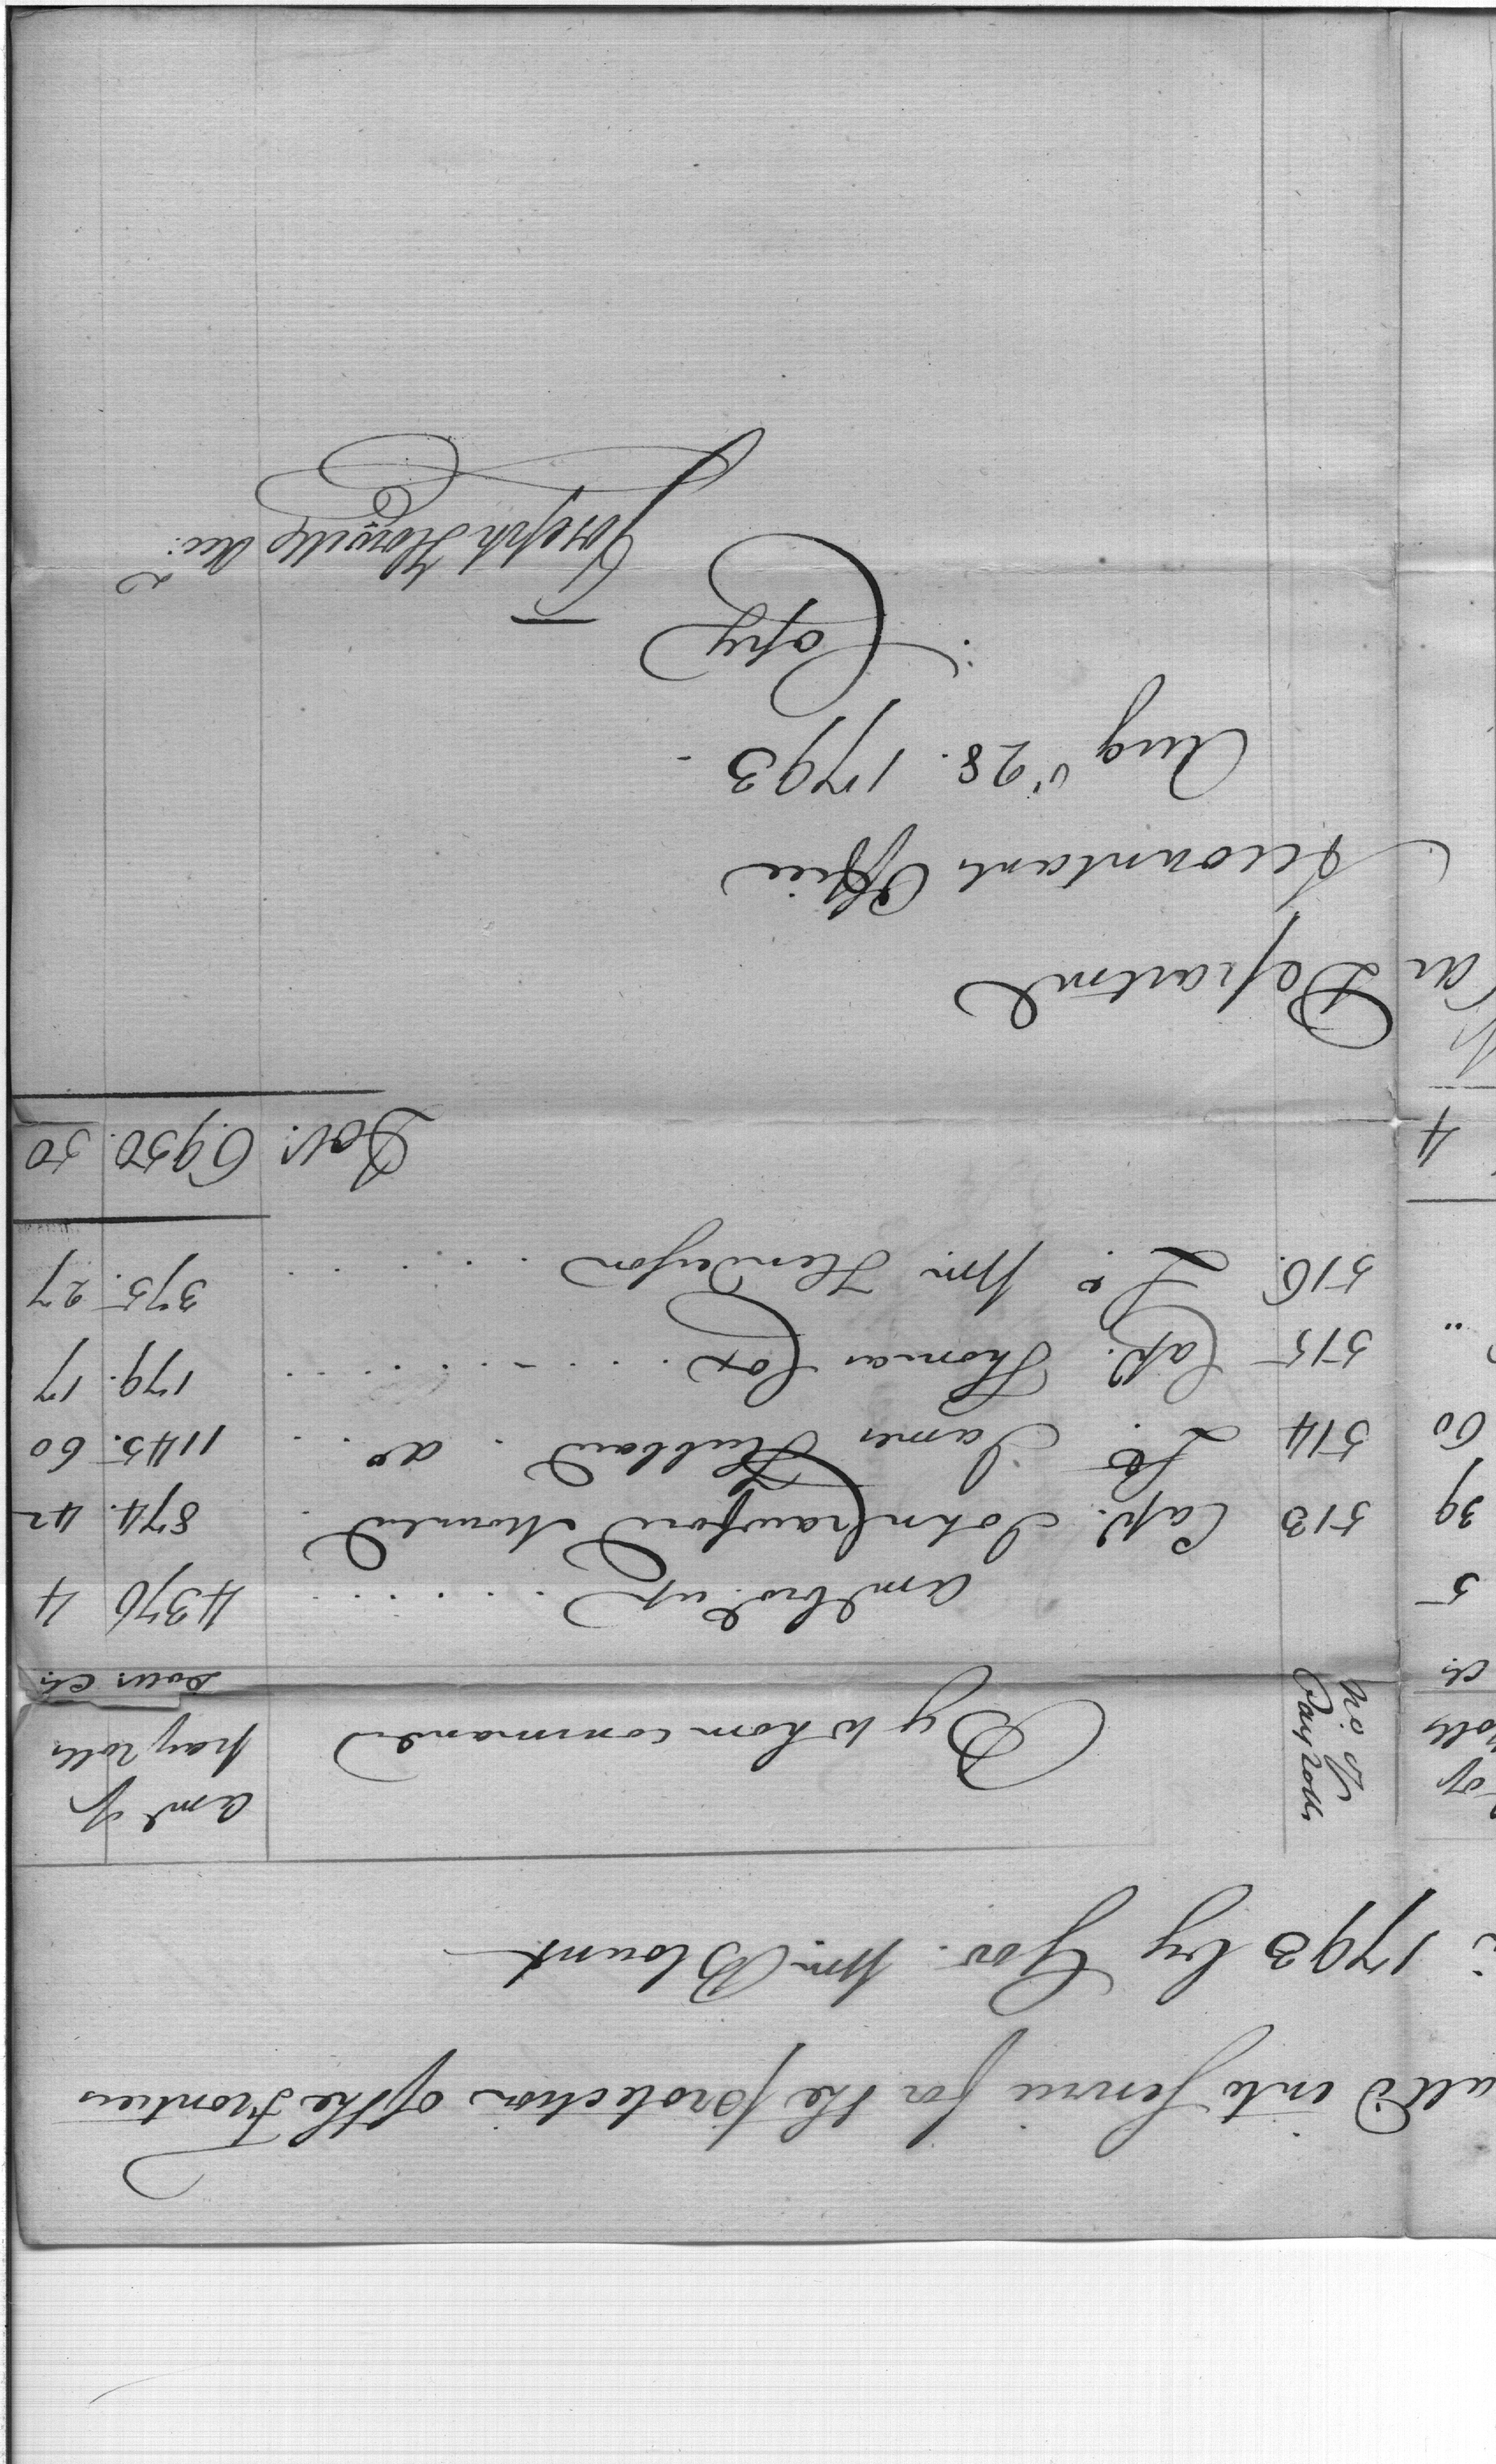 all'd into Service for the protection of the Frontiers
1793 by Gov. Wm. Blount
of No. of Pay rolls By whom command Amt. of
rolls pay rolls
Cts. Dolls. Cts.
5 Amt. bro't up . . . . 4376 4
39 513 Capt. John Crawford Mounted . 874. 42
60 514 Do. James Hubbard . do . . . 1145. 60
" 515 Capt. Thomas Cox . . . . . . . 179. 17
516. Do. Wm. Henderson . . . . . 375. 27
4 Doll. 6,950. 50
War Departmt
Accountants Office
Augt 28. 1793.
Copy
Joseph Howell Acct.